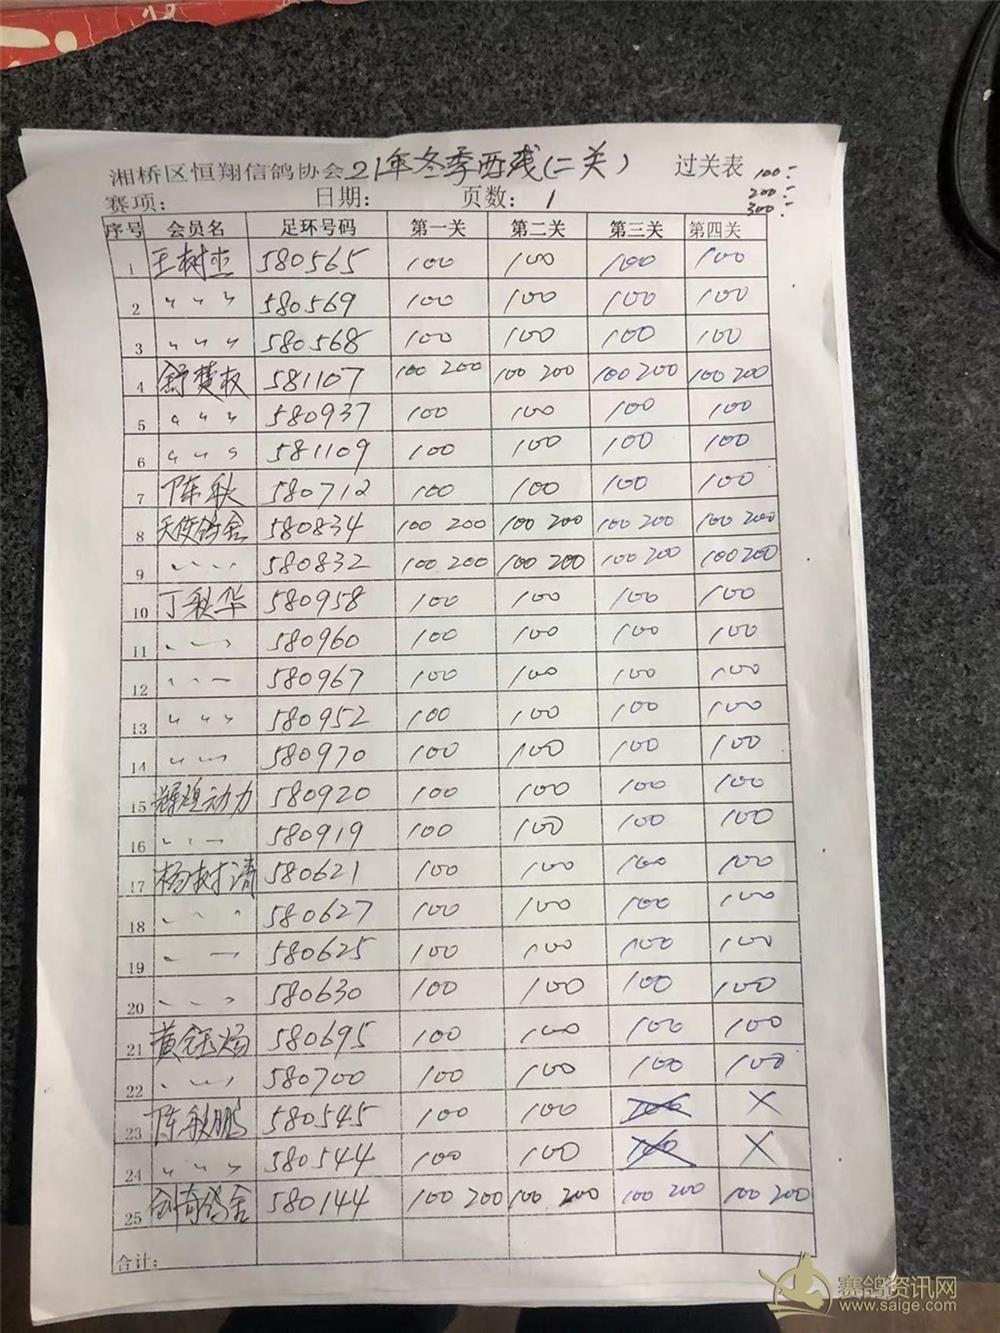 湘桥区恒翔信鸽协会21年冬季西线(二关) 过关表 100:
200:
300:
赛项: 日期: 页数: 1
序号 会员名 足环号码 第一关 第二关 第三关 第四关
1 王树杰 580565 100 100 100 100
2 〃 〃 〃 580569 100 100 100 100
3 〃 〃 〃 580568 100 100 100 100
4 舒楚权 581107 100 200 100 200 100 200 100 200
5 〃 〃 〃 580937 100 100 100 100
6 〃 〃 〃 581109 100 100 100 100
7 陈秋 580712 100 100 100 100
8 天俊鸽舍 580834 100 200 100 200 100 200 100 200
9 〃 〃 〃 580832 100 200 100 200 100 200 100 200
10 丁秋华 580958 100 100 100 100
11 〃 〃 〃 580960 100 100 100 100
12 〃 〃 〃 580967 100 100 100 100
13 〃 〃 〃 580952 100 100 100 100
14 〃 〃 〃 580970 100 100 100 100
15 动力 580920 100 100 100 100
16 〃 〃 〃 580919 100 100 100 100
17 杨树清 580621 100 100 100 100
18 〃 〃 〃 580627 100 100 100 100
19 〃 〃 580625 100 100 100 100
20 〃 〃 〃 580630 100 100 100 100
21 黄钰炀 580695 100 100 100 100
22 〃 〃 〃 580700 100 100 100 100
23 陈秋鹏 580545 100 100 100 ×
24 〃 〃 〃 580544 100 100 100 ×
25 创奇鸽舍 580144 100 200 100 200 100 200 100 200
合计:
赛鸽资讯网
www.saige.com